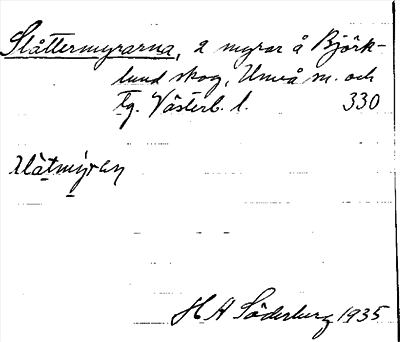 Slåttermyrarna, 2 myror å Björk-
lund skog, Umeå sn. och
tg. Västerb. l. 330
H A Söderberg 1935